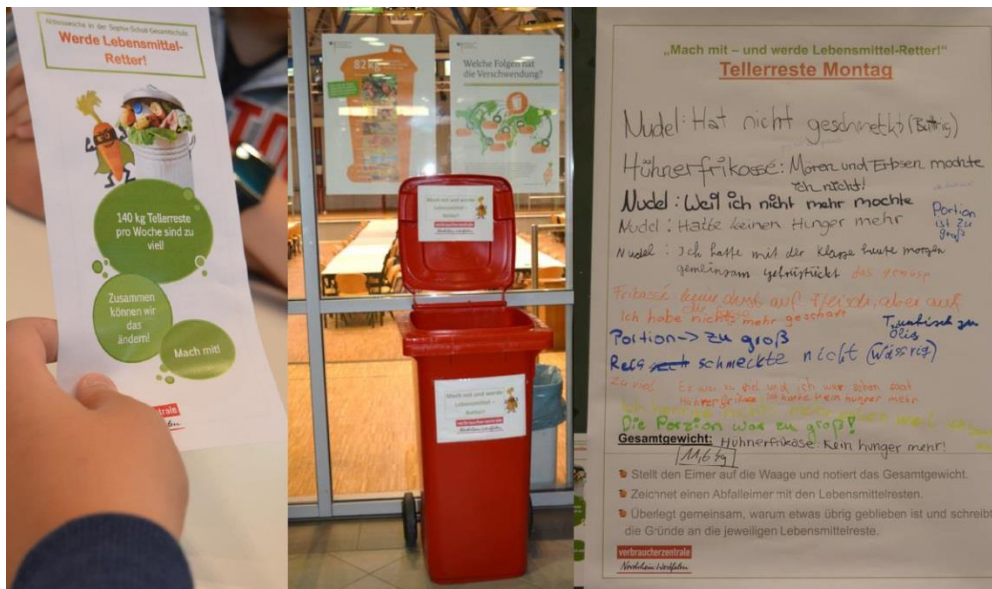 Aktionswoche in der Sophie-Scholl-Gesamtschule
Werde Lebensmittel-
Retter!
140 kg Tellerreste
pro Woche sind zu
viel!
Zusammen
können wir
das
ändern!
Mach mit!
zentrale
82 kg
Welche Folgen hat
die Verschwendung?
Mach mit und werde
Lebensmittel-
Retter!
verbraucherzentrale
Nordrhein-Westfalen
Mach mit und werde
Lebensmittel –
Retter!
verbraucherzentrale
Nordrhein-Westfalen
„Mach mit – und werde Lebensmittel-Retter!“
Tellerreste Montag
Nudel: Hat nicht geschmeckt
Hühnerfrikasé: Mören und Erbsen mochte
ich nicht!
Nudel: Weil ich nicht mehr mochte
Nudel: Hatte keinen Hunger mehr
Portion
ist zu
groß
Nudel: Ich hatte mit der Klasse heute morgen
gemeinsam gefrüstückt
Frikassé keine auf Fleisch, aber auf
Ich habe nicht mehr geschaft
Portion-> zu groß
Reis schmeckte nicht (wässrig)
Zu viel Es war zu viel und ich war schon satt
Hühnerfrikase: Ich hatte kein hunger mehr
Die Porzion war zu groß!
Gesamtgewicht: Hühnerfrikase: Kein hunger mehr!
11,6 kg
Stellt den Eimer auf die Waage und notiert das Gesamtgewicht.
Zeichnet einen Abfalleimer mit den Lebensmittelresten.
Überlegt gemeinsam, warum etwas übrig geblieben ist und schreibt
die Gründe an die jeweiligen Lebensmittelreste.
verbraucherzentrale
Nordrhein-Westfalen